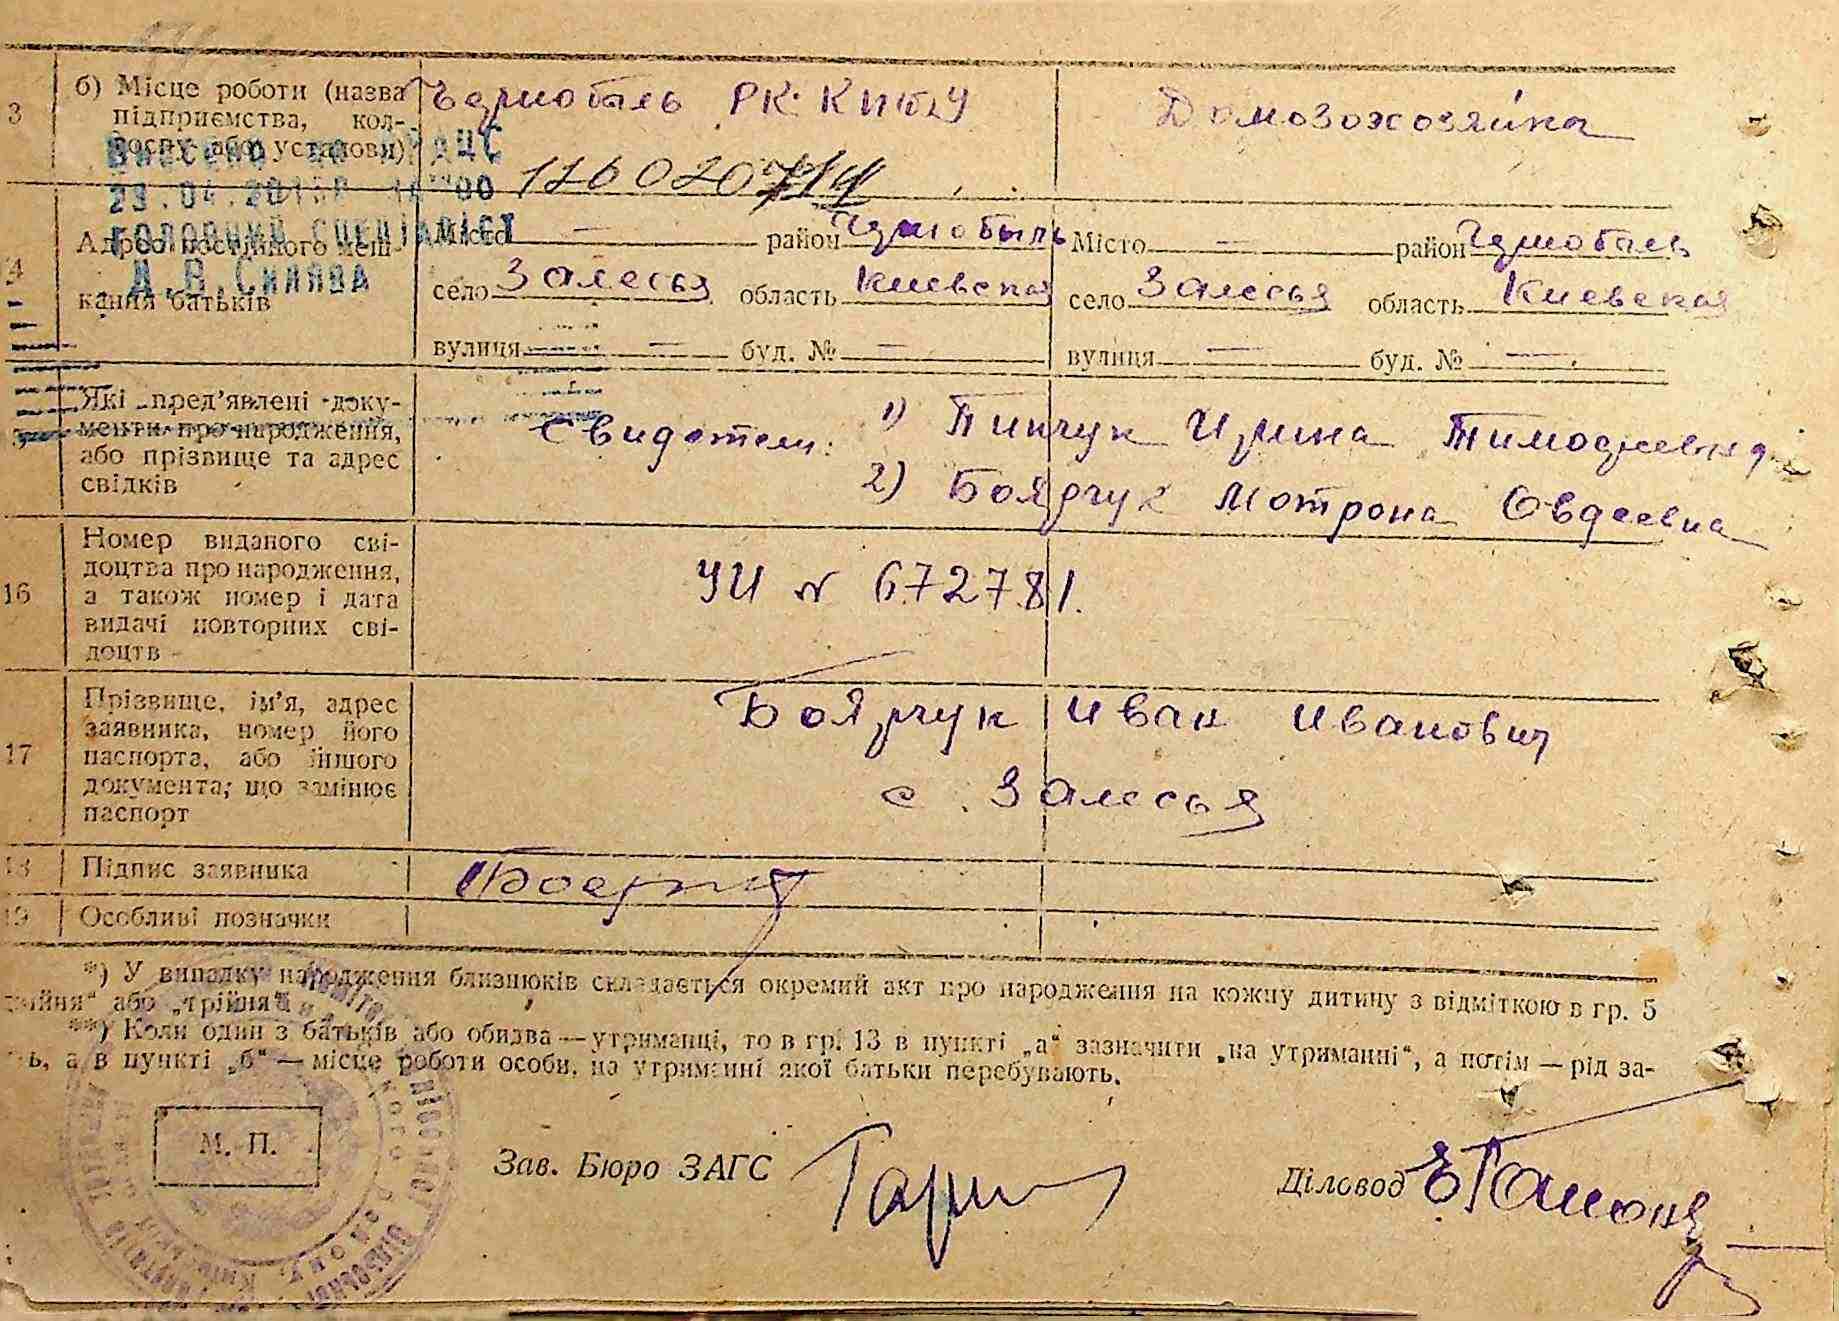 3
б) Місце роботи (назва підприємства, кол-
госпу або установи)
Чернобыль РК КП(б)У
Домохозяйка
Внесено до
23.04.20
ГОЛОВНИЙ СПЕЦІАЛІСТ
Д.В.
12602071
4
Адреса постійного меш-
кання батьків
Місто — район Чернобыль
село Залесья область Киевская
вулиця — буд. № —
Місто — район Чернобыль
село Залесья область Киевская
вулиця — буд. № —
Які пред'явлені доку-
менти про народження,
або прізвище та адрес
свідків
Свидетели: 1) Пинчук Ирина Тимофеевна
2) Боярчук Мотрона Овдеевна
16
Номер виданого сві-
доцтва про народження,
а також номер і дата
видачі повторних сві-
доцтв
УИ № 672781.
17
Прізвище, ім'я, адрес
заявника, номер його
паспорта, або іншого
документа, що замінює
паспорт
Боярчук Иван Иванович
с. Залесья
18
Підпис заявника
19
Особливі позначки
*) У випадку народження близнюків складається окремий акт про народження на кожну дитину з відміткою в гр. 5
двійня“ або „трійня“
**) Коли один з батьків або обидва — утриманці, то в гр. 13 в пункті „а“ зазначити „на утриманні“, а потім — рід за-
ь, а в пункті „б“ — місце роботи особи, на утриманні якої батьки перебувають.
М. П.
Зав. Бюро ЗАГС
Діловод